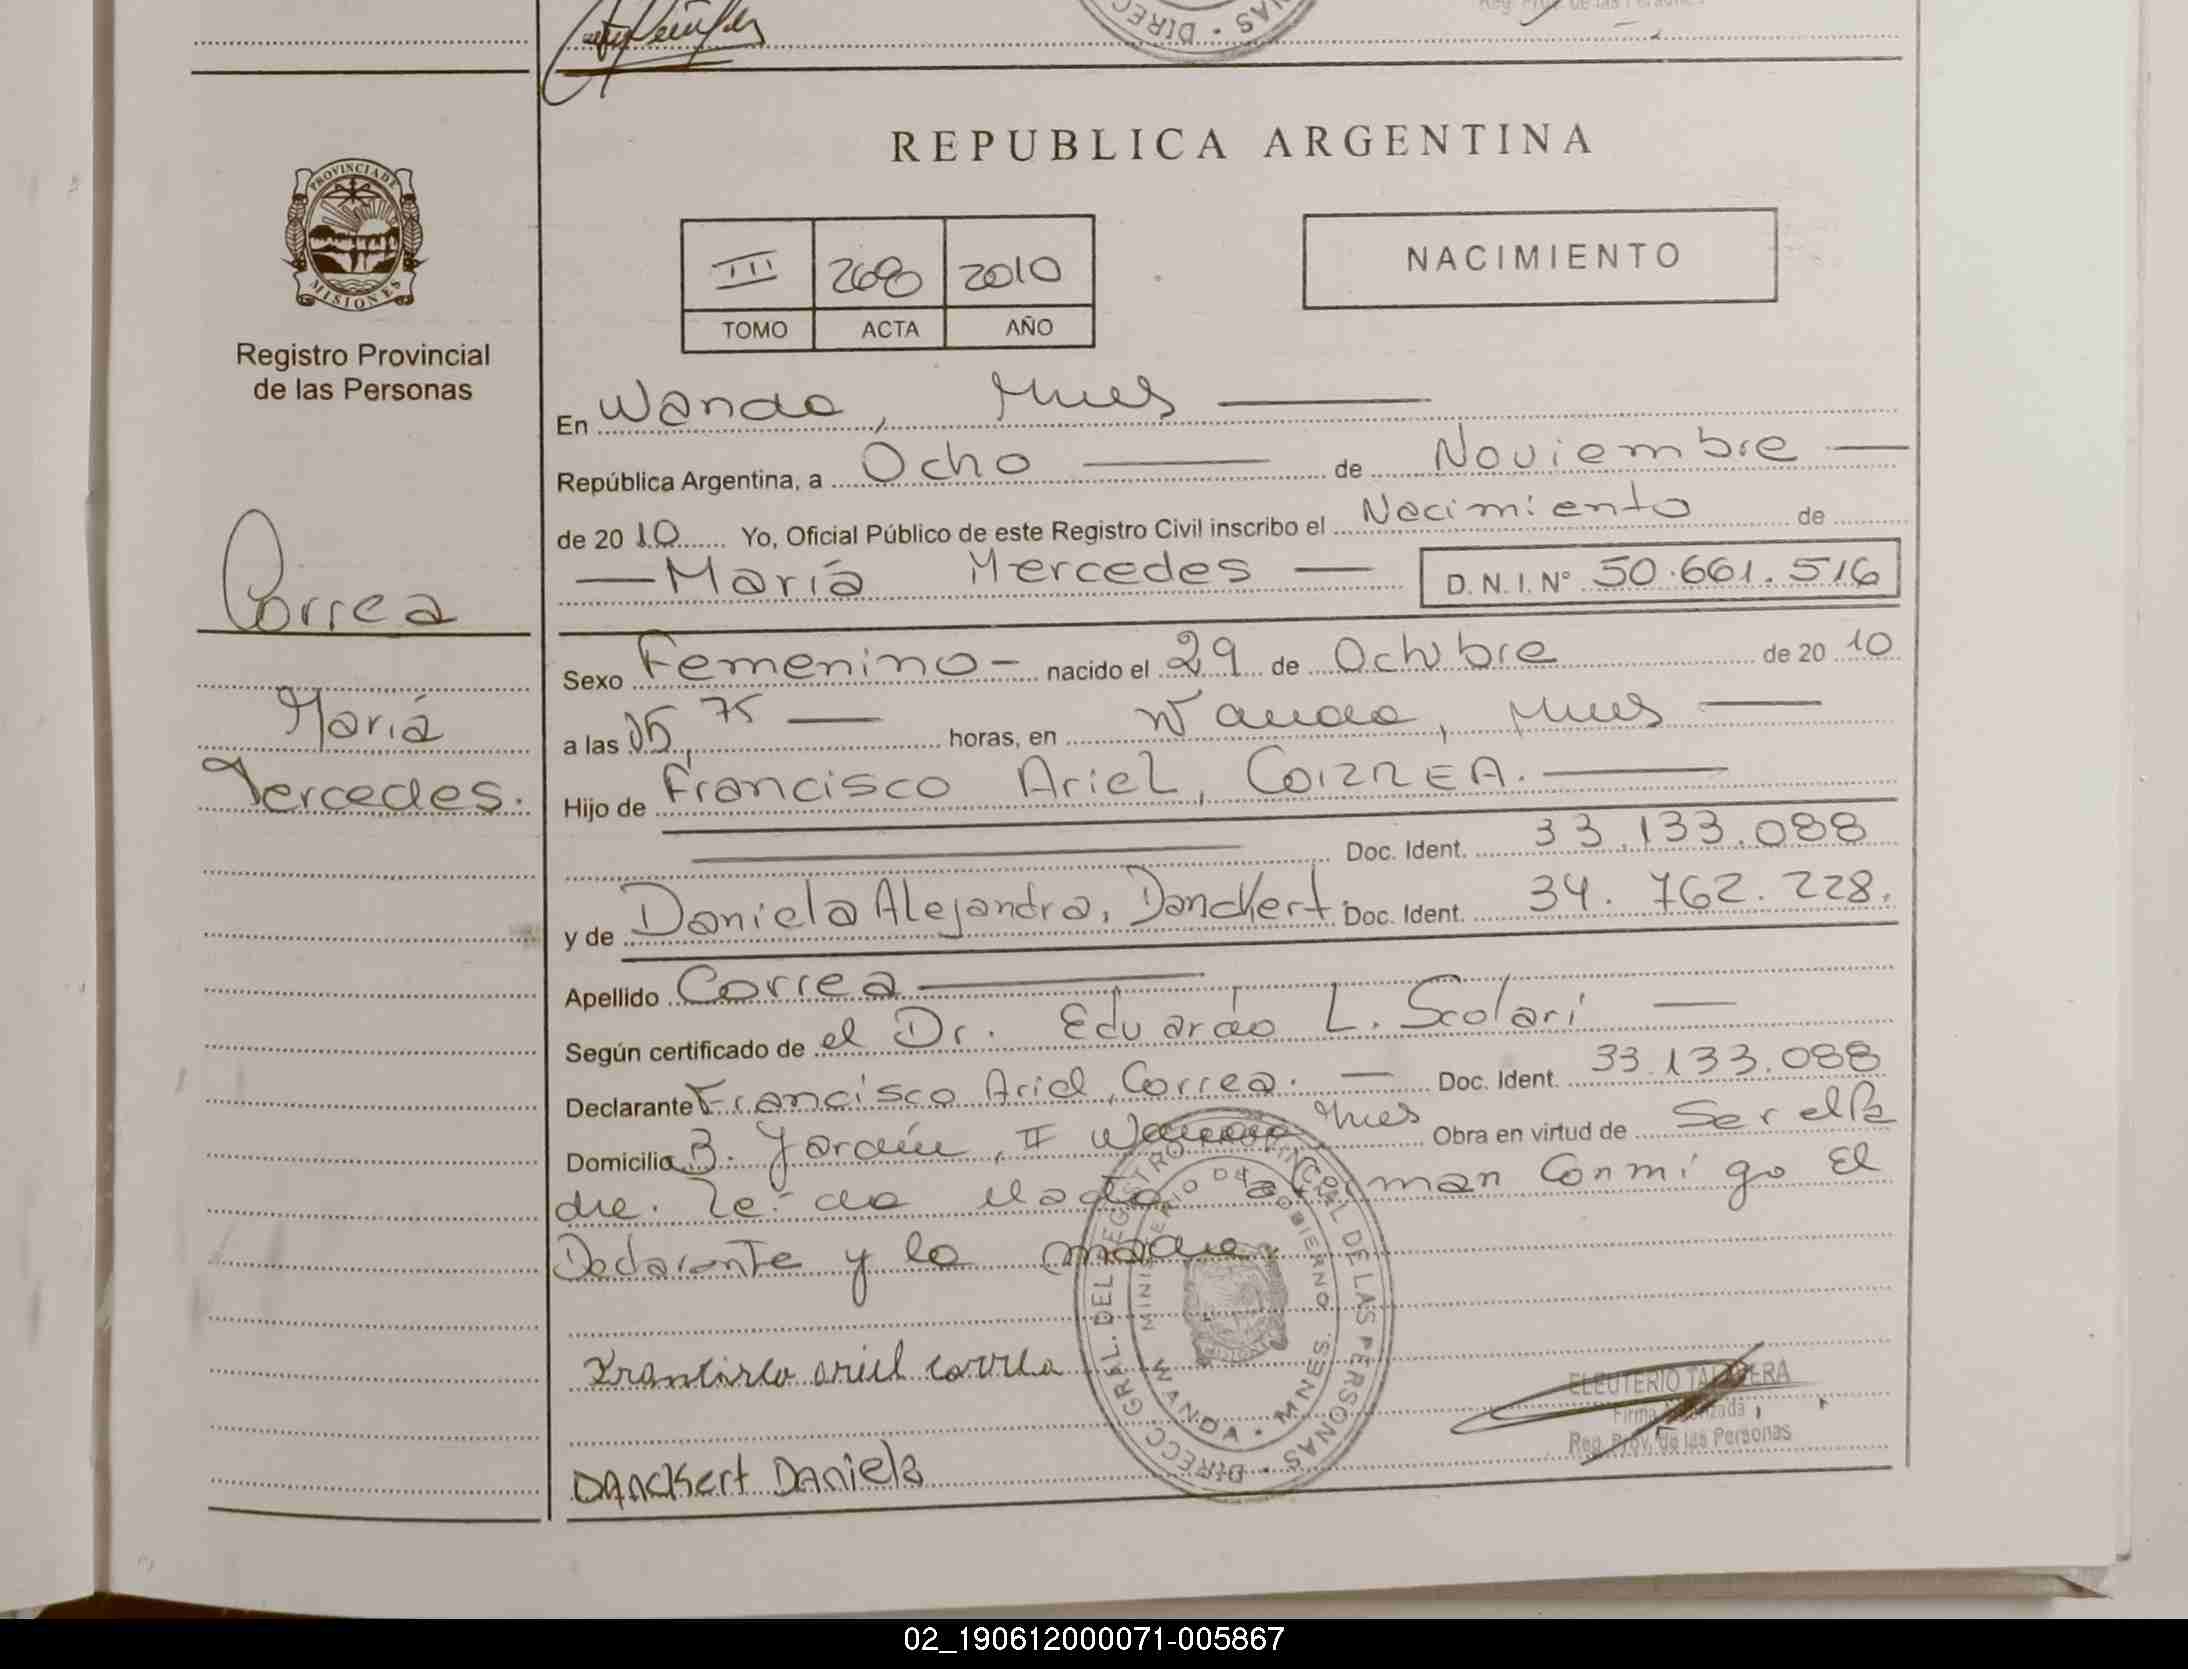 REPUBLICA ARGENTINA
PROVINCIA DE
MISIONES
Registro Provincial
de las Personas
III 268 2010
TOMO ACTA AÑO
NACIMIENTO
Correa
María
Mercedes.
En Wanda, Mnes
República Argentina, a Ocho de Noviembre
de 2010 Yo, Oficial Público de este Registro Civil inscribo el Nacimiento de
María Mercedes D.N.I. Nº 50.661.516
Sexo Femenino nacido el 29 de Octubre de 2010
a las horas, en Wanda, Mnes
Hijo de Francisco Ariel, CORREA.
Doc. Ident. 33.133.088
y de Daniela Alejandra, Danckert. Doc. Ident. 34.762.228.
Apellido Correa
Según certificado de el Dr. Eduardo L. Scolari
Declarante Francisco Ariel, Correa. Doc. Ident. 33.133.088
Domicilio B. Jardín, II Wanda Mnes Obra en virtud de Ser el Pa
dre. Leída el acta firman Conmigo El
Declarante y la madre.
Francisco ariel correa
DANCKert DANiela
DIRECC GRAL. DEL REGISTRO PROVINCIAL DE LAS PERSONAS
MINISTERIO DE GOBIERNO
WANDA - MNES.
ELEUTERIO TALAVERA
Firma Autorizada
Reg. Prov. de las Personas
02_190612000071-005867